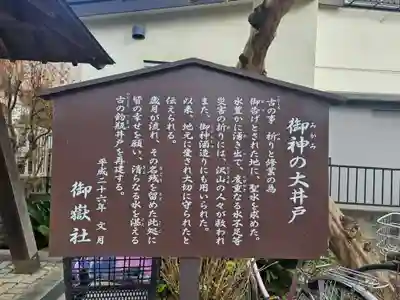 御神の大井戸
みかみ
古の事 祈りと修業の為
御告げとされた地に、聖水を求めた。
水豊かに湧き出て、度重なる水不足等
災害の折りには、沢山の人々が救われ
また、御神酒造りにも用いられた。
以来、地元に愛され大切に守られたと
伝えられる。
歳月が流れ、その名残を留めた此処に
皆の幸せを願い、清らなる水を蓄える
古の釣瓶井戸を再建する。
平成二十六年 文月
御嶽社